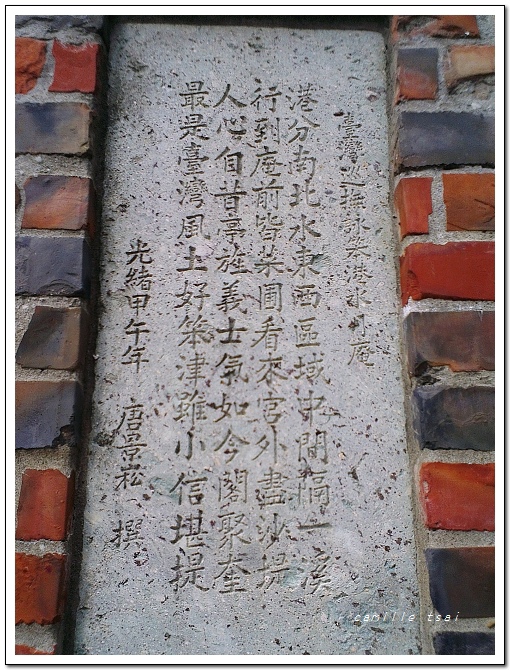 臺灣巡撫詠笨港水月庵
港分南北水東西區域中間隔一溪
行到庵前皆菜圃看來宮外盡沙堤
人心旬昔亭旌義士氣如今閣聚奎
最是臺灣風土好笨津雖小信堪提
光緒甲午年 唐景崧 撰
camille tsai